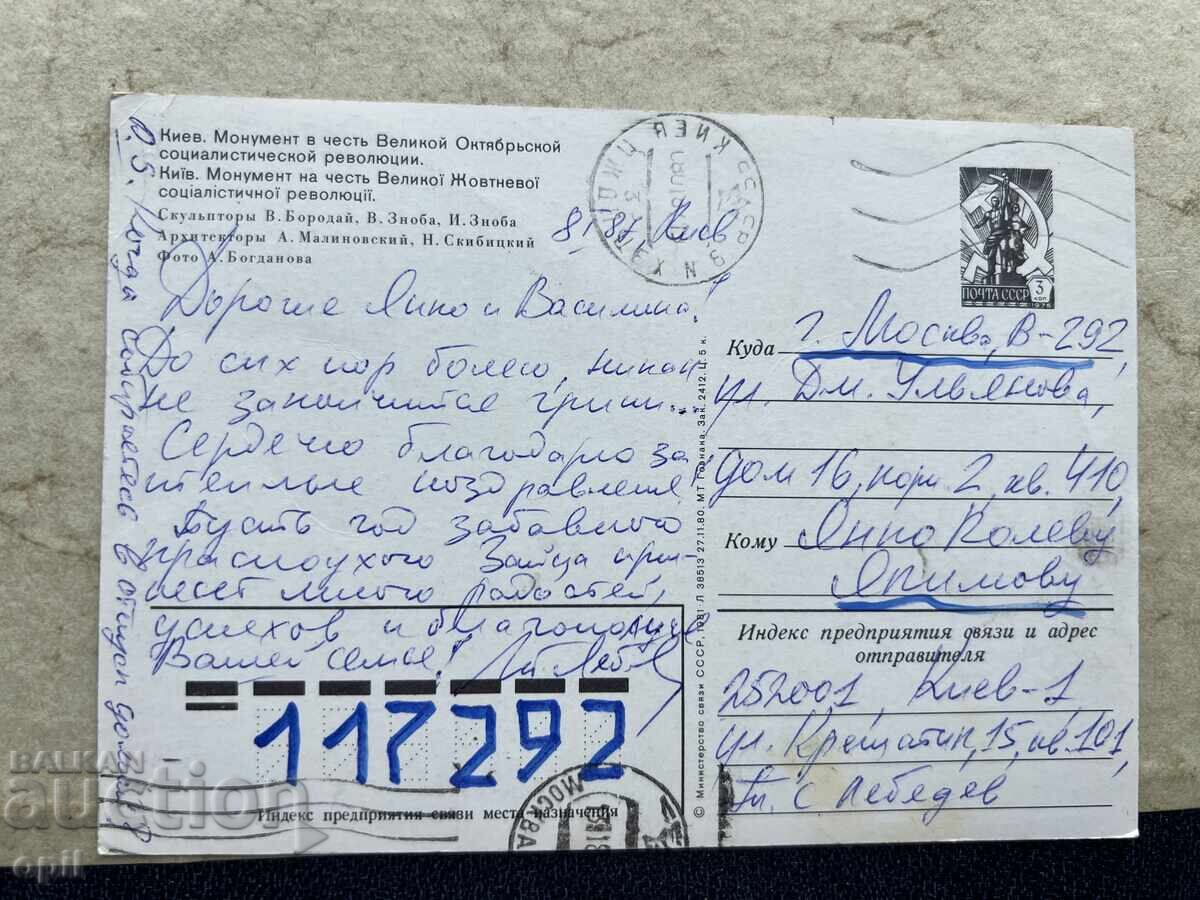 Киев. Монумент в честь Великой Октябрьской
социалистической революции.
Київ. Монумент на честь Великої Жовтневої
соціалістичної революції.
Скульпторы В. Бородай, В. Зноба, И. Зноба
Архитекторы А. Малиновский, Н. Скибицкий
Фото А. Богданова
8/I 87, Киев
Дорогие Янко и Василина!
До сих пор болею, никак
не закончится грипп...
Сердечно благодарю за
теплые поздравления
Пусть год забавного
красноухого Зайца при-
несет много радостей,
успехов и благополучие
Вашей семье!
P.S. Когда собираетесь в отпуск домой?
117292
Индекс предприятия связи места назначения
МОСКВА
© Министерство связи СССР, 1981 Л 38513 27.11.80. МТ Гознака. Зак. 2412. Ц. 5 к.
ПОЧТА СССР 3 коп 1976
Куда г. Москва, В-292,
ул. Дм. Ульянова,
дом 16, корп. 2, кв. 410,
Кому Янко Колеву
Якимову
Индекс предприятия связи и адрес
отправителя
252001, Киев-1
ул. Крещатик, 15, кв. 101,
Лебедев
BALKAN
auction
opil